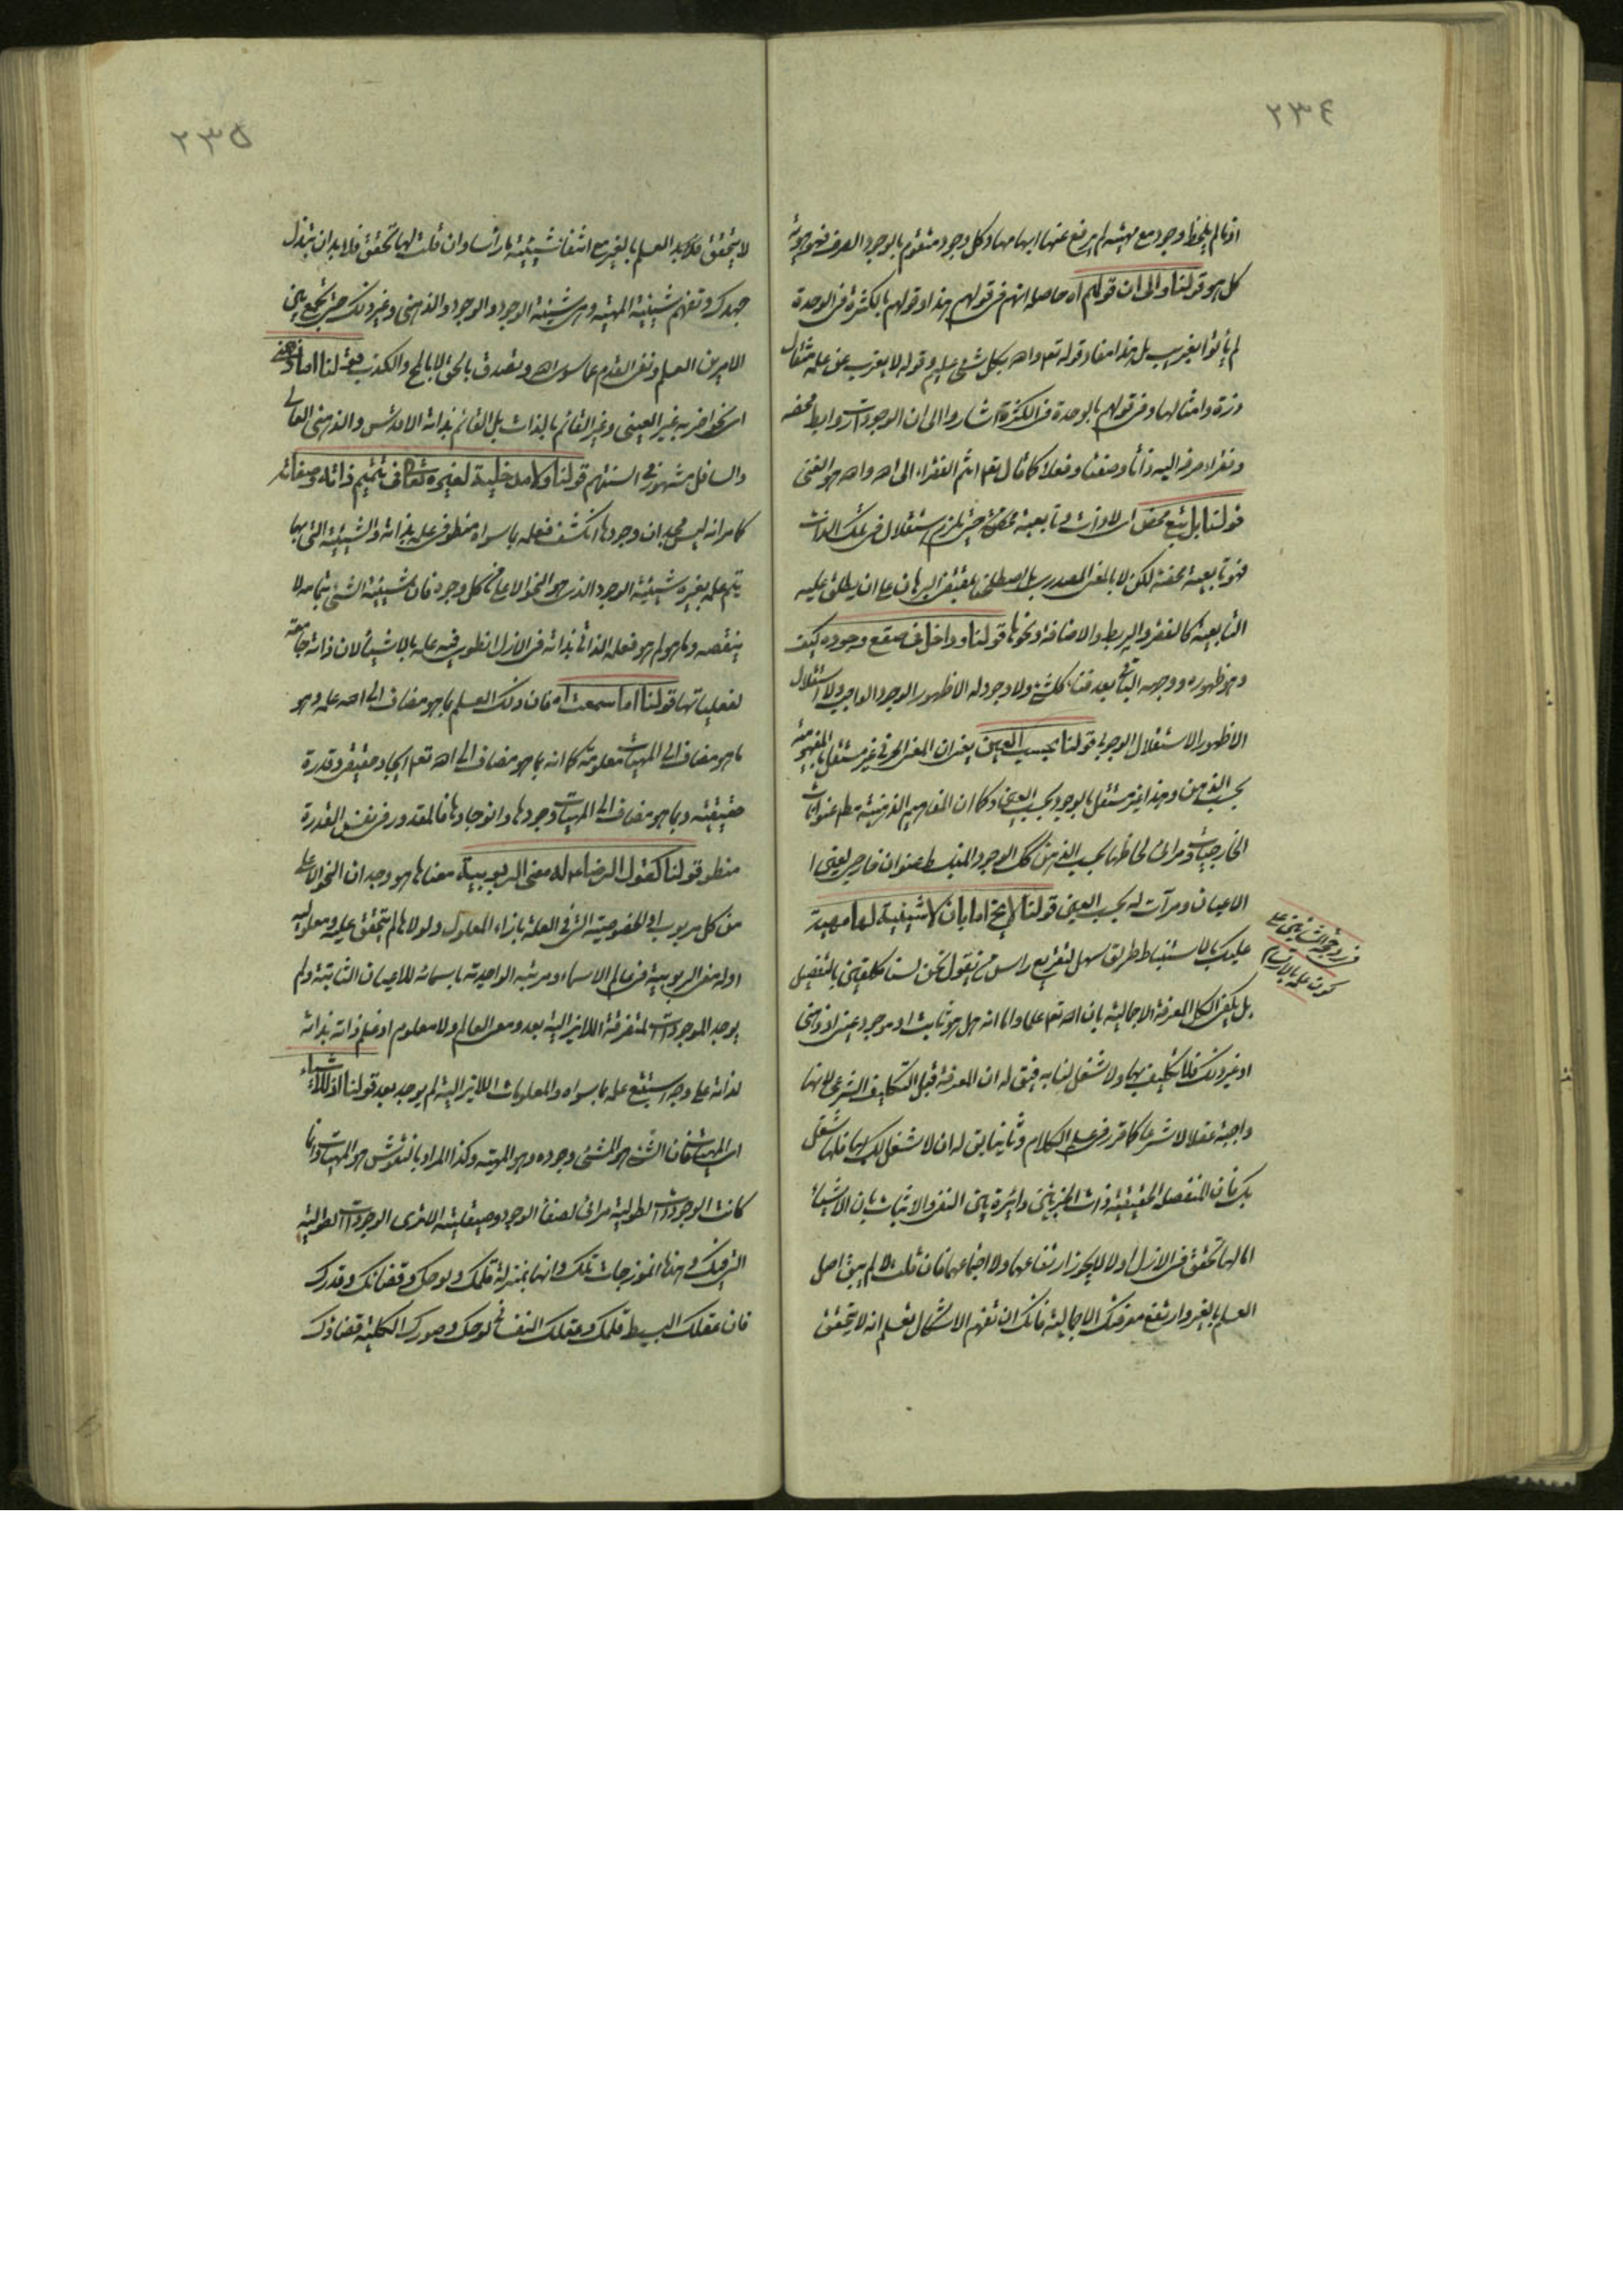 ٢٣٤
اذ ما لم يلحظ وجود مع مهيته لم يرفع عنها ابهامها وكل وجود متقوم بالوجود الصرف فهو هوية
كل هو قولنا والى ان قولهم اه حاصله انهم فى قولهم هذا او قولهم بالكثرة فى الوحدة
لم يأتوا بغريب بل هذا مفاد قوله تعم والله بكل شئ عليم وقوله لا يعزب عن علمه مثقال
ذرة وامثالها وفى قولهم بالوحدة فى الكثرة اشاروا الى ان الوجودات روابط محضه
وفقراء صرفه اليه ذاتا وصفتا وفعلا كما قال تعم انتم الفقراء الى الله والله هو الغنى
قولنا بل تبع محض اى لا ذات وتابعية محضة حتى يلزم استقلال فى تلك الذات
فهو تابعية محضة لكن لا بالمعنى المصدرى بل اصطلحنا بمقتضى البرهان على ان يطلق عليه
التابعية كالفقر والربط والاضافة ونحوها قولنا وداخل فى صقع وجوده كيف
وهو ظهوره ووجهه الباقى بعد فناء كل شئ ولا وجود له الا ظهور الوجود الواجب ولا استقلال
الا ظهور الاستقلال الوجوبى قولنا بحسب العين يعنى ان المعنى الحرفى غير مستقل بالمفهومية
بحسب الذهن وهذا غير مستقل بالوجود بحسب العين وكما ان المفاهيم الذهنية مط عنوانات
الخارجيات ومرائى لحاظها بحسب الذهن كك الوجود المنبسط عنوان خارجى يعنى ا
الاعيان ومرآت له بحسب العين قولنا لا يخ اما بان لا شيئية لها مهية
عليك بالاستنباط طريق سهل لتقريع راس من يقول نحن لسنا مكلفين بالتفصيل
بل يكفى الكل المعرفة الاجمالية بان الله تعم علما واما انه هل هو ثابت او موجود عينى او ذهنى
او غير ذلك فلا تكليف بها ولا شغل لنا به فيق له ان المعرفة قبل التكليف الشرعى لانها
واجبة عقلا لا شرعا كما قرر فى علم الكلام وثانيا يق له ان لا شغل لك بها فلها شغل
بك فان المنفصله الحقيقية ذات الجزئين دائرة بين النفى والاثبات بان الاشياء
اما لها تحقق فى الازل او لا لا يجوز ارتفاعهما ولا اجتماعهما فان قلت لا لم يبق اصل
العلم بالغير وارتفع معرفتك الاجالية فانك ان تفهم الاشكال تعلم انه لا يتحقق
٢٣٥
لا يتحقق فلا بد العلم بالغير مع انتفاء شيئية راسا وان قلت لها تحقق فلا بد ان تبذل
جهدك وتفهم شيئية المهية وهى شيئية الوجود والوجود والذهنى وغير ذلك حتى تجمع بين
الامرين العلم ونفى القدم عما سوى الله وتصدق بالحق لا بالمح والكذب قولنا اما ذهنى
اى نحو اخر به غير العينى وغير القائم بالذات بل القائم بذاته الاقدس والذهنى العالى
والسافل مشهور فى السنتهم قولنا ولا مدخلية لغيره تعالى فى تتميم ذاته وصفاته
كما مر انه ليس بمجد ان وجودها انكشف فعلمه بما سواه منطو فى علمه بذاته والشيئية التى بها
يتم علمه بغيره شيئية الوجود الذى هو النحو الاعلى من كل وجود فان شيئية الشئ بتمامه لا
بنقصه وما هو لم هو فعله الذاتى بذاته فى الازل انطوى فيه علمه بالاشياء لان ذاته جامعة
لفعلياتها قولنا اما سمعت اه فان ذلك العلم بما هو مضاف الى الله علمه وهو
ما هو مضاف الى المهيات معلومية كما انه بما هو مضاف الى الله تعم ايجاد حقيقى وقدرة
حقيقية وبما هو مضاف الى المهيات وجودها وانوجادها فالمقدور فى نفس القدرة
منطو قولنا كقول الرضا عم له معنى الربوبية معناها هو وجدان النحو الاعلى
من كل مربوب او الخصوصية التى فى العلة بازاء المعلول ولولاها لم يتحقق علية ومعلولية
او له معنى الربوبية فى عالم الاسماء ومرتبه الواحدية باسمائه للاعيان الثابتة ولم
يوجد الموجودات المتفرقة اللايزالية بعد ومعنى العالم ولا معلوم اذ علم ذاته بذاته
لذاته على وجه يستتبع علمه بما سواه والمعلومات اللايزالية لم يوجد بعد قولنا اذ للاشياء
اى المهيات فان الشئ هو المشئ وجوده وهو المهية وكذا المراد بالنقوش هو المهيات وانما
كانت الوجودات الطولية مرائى لصفاء الوجود وصيقليته الا ترى الوجودات الطولية
التى فيك وهذه انموزجات تلك وانها بمنزلة قلمك ولوحك وقضائك وقدرك
فان عقلك البسيط قلمك وعقلك النفسانى لوحك وصورك الكلية قضاؤك